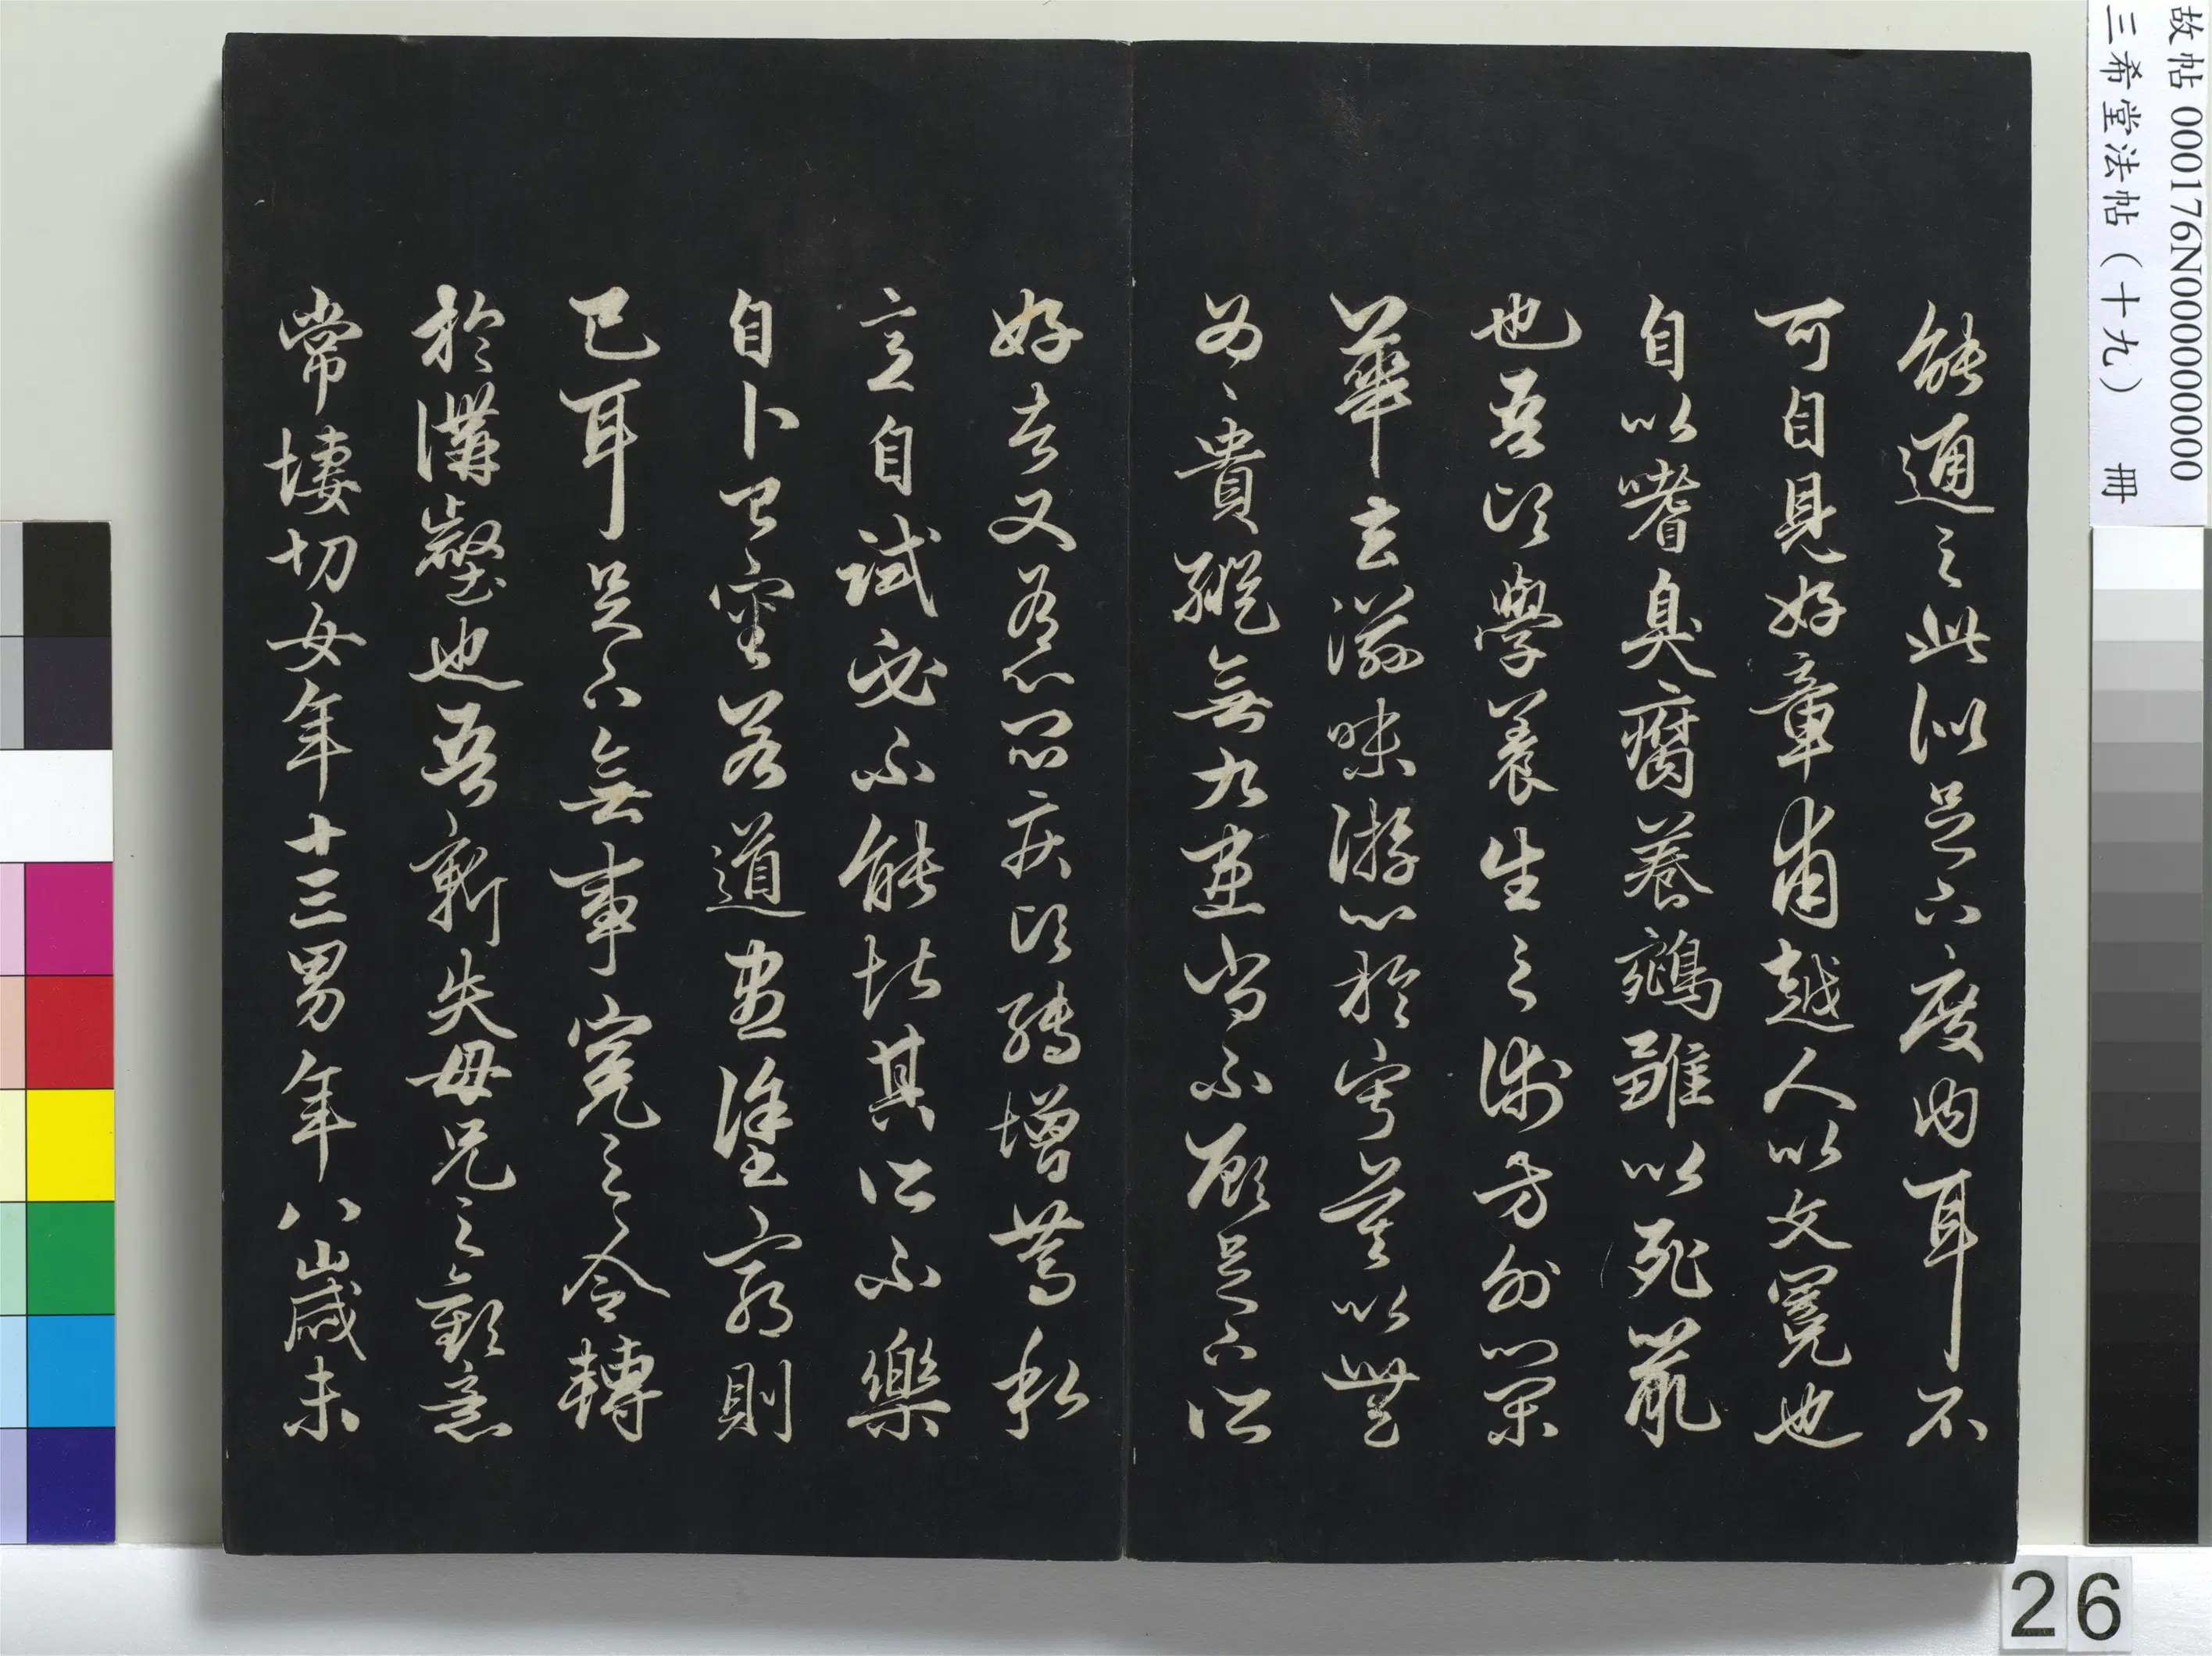 能通之此似足下度內耳不
可自見好章甫越人以文冕也
自以嗜臭腐養鵷雛以死鼠
也吾頃學養生之術方外榮
華去滋味游心於寂莫以無
為為貴縱無九患尚不顧足下所
好者又有心悶疾頃轉增篤私
意自試必不能堪其所不樂
自卜已審若道盡塗窮則
已耳足下無事冤之令轉
於溝壑也吾新失母兄之歡意
常悽切女年十三男年八歲未
故帖 000176N000000000
三希堂法帖（十九） 冊
26